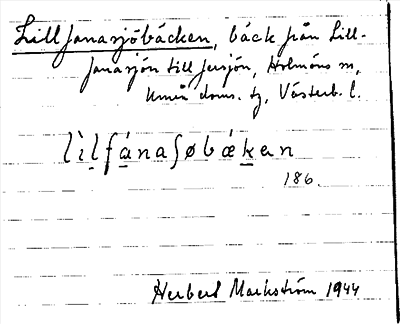 Lill Janasjöbäcken, bäck från Lill-
Janasjön till Jersjön, Holmöns sn,
Umeå doms. tg, Västerb. l.
lìl̠fánaʃøbǽk̠en
186.
Herbert Markström 1944